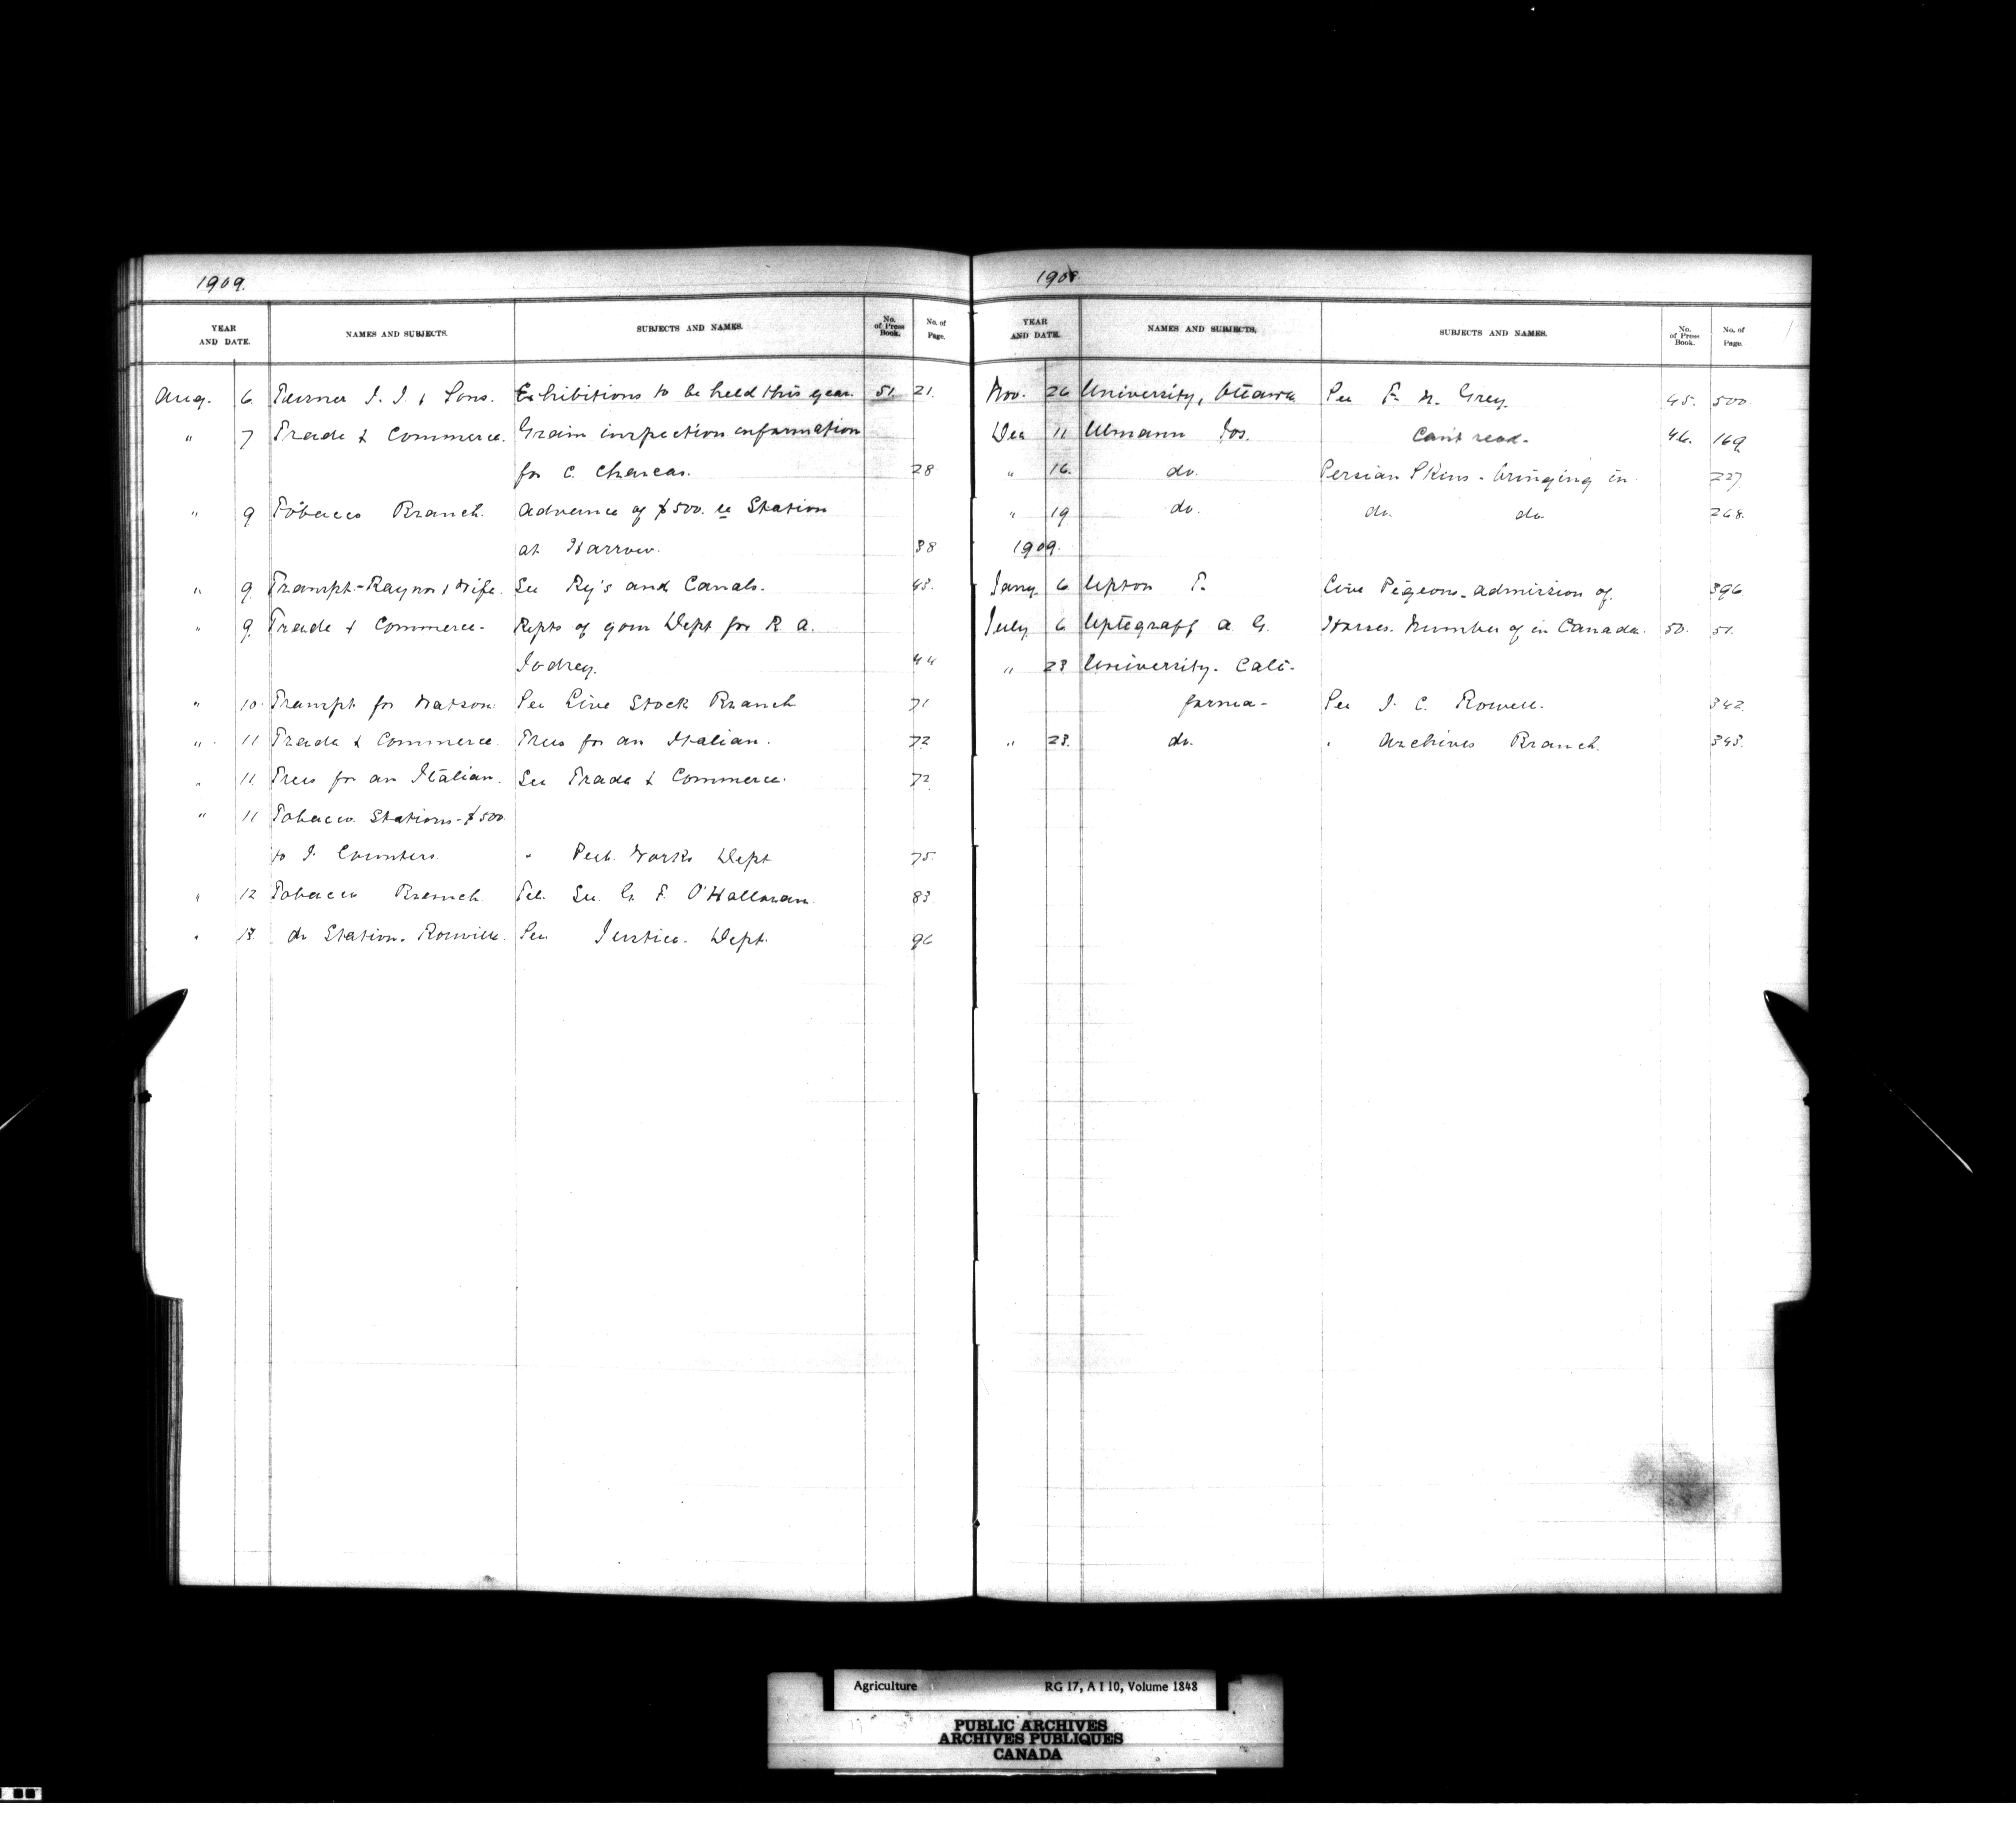 1909.
YEAR AND DATE. NAMES AND SUBJECTS. SUBJECTS AND NAMES. No. of Press Book. No. of Page.
Aug. 6 Turner J. J. & Sons. Exhibitions to be held this year. 51. 21.
" 7 Trade & Commerce. Grain inspection information
for C. Charcas. 28
" 9 Tobacco Branch. Advance of $500. re Station
at Harrow. 38
" 9 Transpt - Raynor & Wife. See Ry's and Canals. 43.
" 9 Trade & Commerce - Repts of your Dept for R. A.
Jodrey. 44
" 10. Transpt for Watson. See Live Stock Branch 71
" 11 Trade & Commerce Trees for an Italian. 72
" 11 Trees for an Italian. See Trade & Commerce. 72
" 11 Tobacco Stations - $500
to J. " Pub. Works Dept 75.
" 12 Tobacco Branch Tel. See G. F. O'Halloran. 83.
" 13. do Station. See Justice. Dept. 96
1908.
YEAR AND DATE. NAMES AND SUBJECTS. SUBJECTS AND NAMES. No. of Press Book. No. of Page.
Nov. 26 University, Ottawa See F. N. Grey. 45. 500
Dec 11 Ulmann Jos. Can't read - 46. 169
" 16. do. Persian Skins - bringing in 227
" 19 do. do. do. 268.
1909.
Jany. 6 Upton T. Live Pigeons - admission of. 396
July 6 Uptegraff A. G. Horses. Number of in Canada. 50. 51.
" 23 University. Cali-
fornia - See J. C. Rowell. 342.
" 23. do. " Archives Branch. 343.
Agriculture RG 17, A I 10, Volume 1848
PUBLIC ARCHIVES
ARCHIVES PUBLIQUES
CANADA